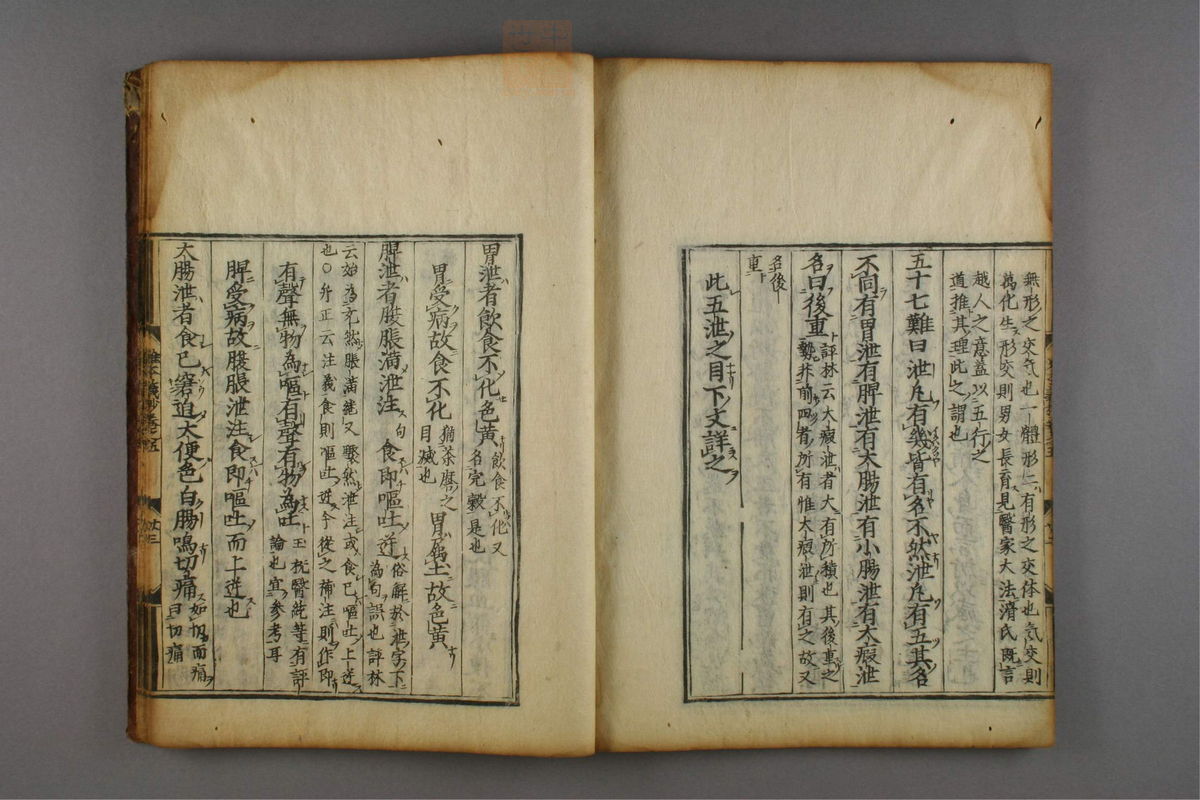 無形之交気也一體形二有形之交体也気交則
萬化生形交則男女長育見醫家大法滑氏既言
越人之意蓋以五行之
道推其理此之謂也
五十七難曰泄凡有幾皆有名不然泄凡有五其名
不同有胃泄有脾泄有大腸泄有小腸泄有大瘕泄
名曰後重
評林云大瘕泄者大有所積也其後重之
勢非前四者所有惟大瘕泄則有之故又
名後
重
此五泄之目下文詳之
胃泄者飲食不化色黄
飲食不化又
名完穀是也
胃受病故食不化
猶茶磨之
目滅也
胃属土故色黄
脾泄者腹脹満泄注句食即嘔吐逆
俗解於泄字下
為句誤也評林
云始為充然脹満繼又驟然泄注或食已嘔吐上逆
也〇弁正云注義食則嘔吐逆今從之補注則作即
有聲無物為嘔有聲有物為吐
玉机醫統等有評
論也宜參考耳
脾受病故腹脹泄注食即嘔吐而上逆也
大腸泄者食已窘迫大便色白腸鳴切痛
如切而痛
曰切痛